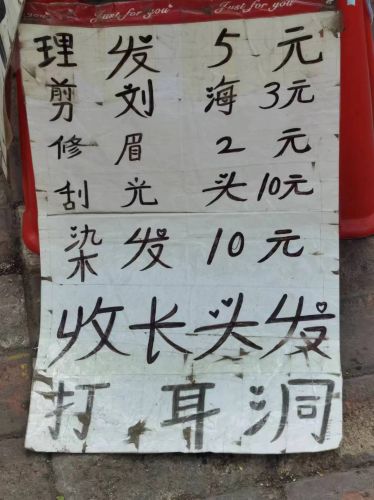 Just for you Just for you
理发 5元
剪刘海 3元
修眉 2元
刮光头 10元
染发 10元
收长头发
打耳洞